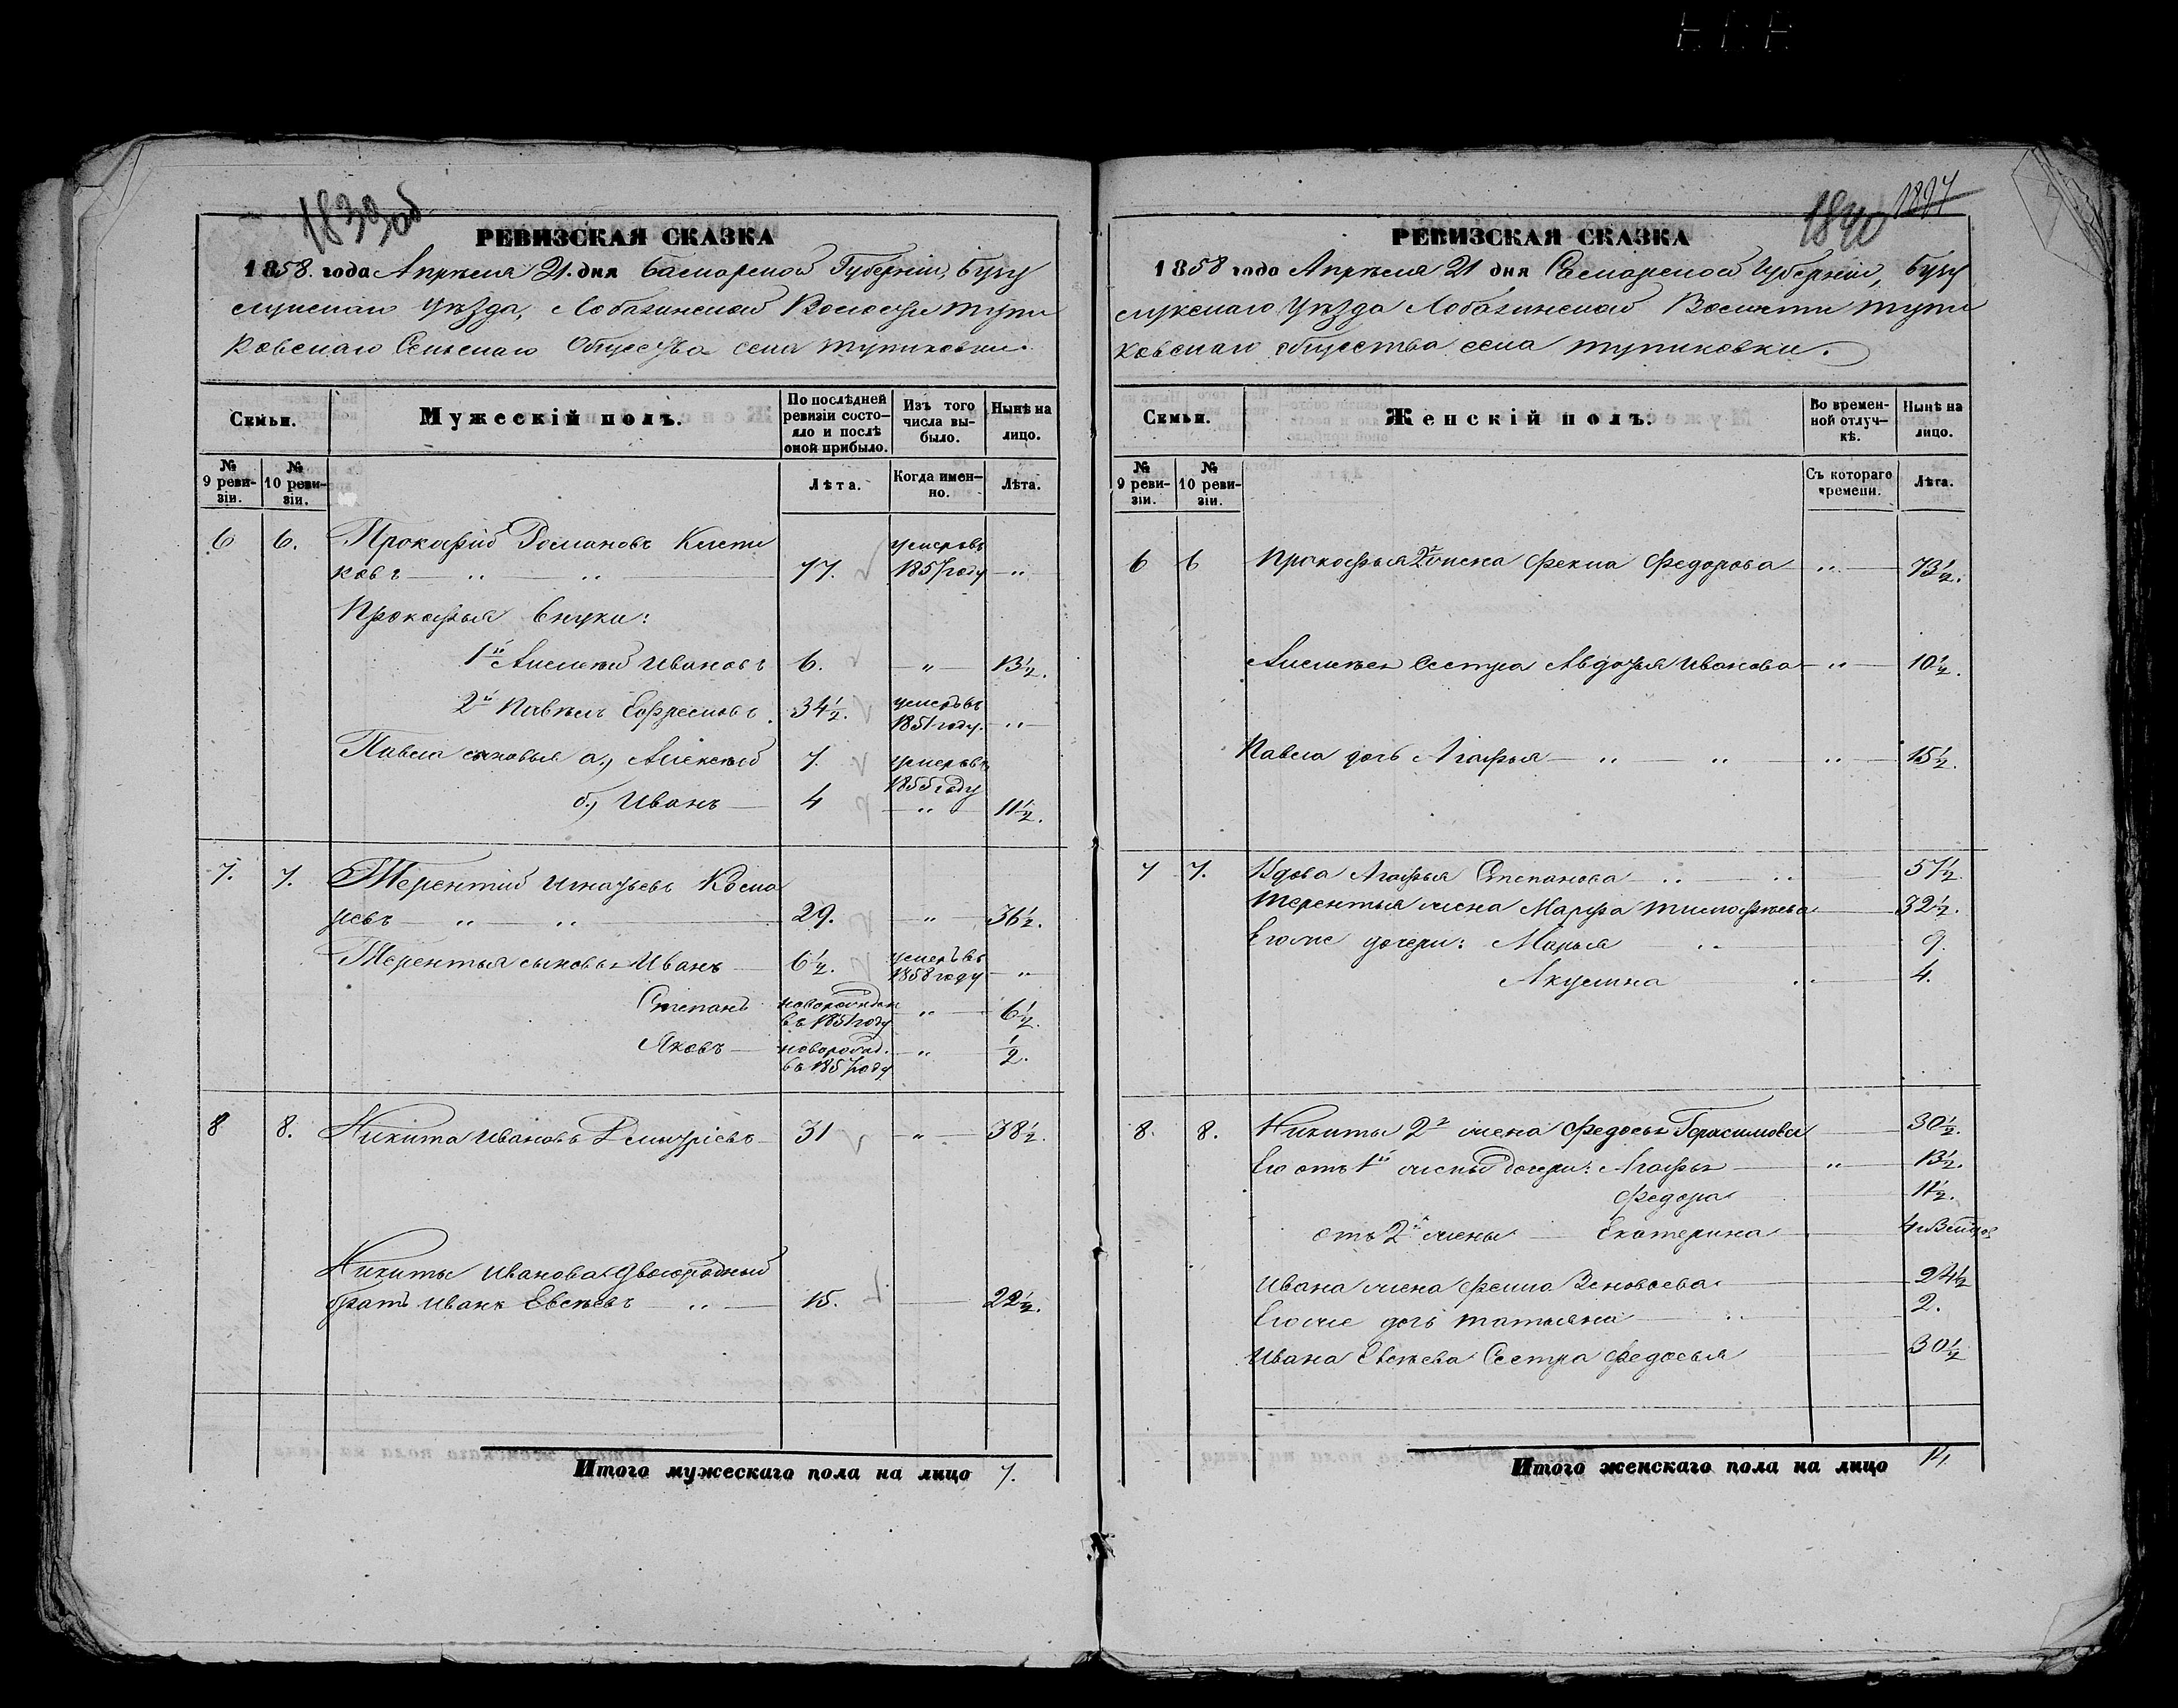 1839об
РЕВИЗСКАЯ СКАЗКА
1858. года Апрѣля 21. дня Самарской Губерніи, Бугу
слукскаго уѣзда, Лобазинской Волости Тупи
ковскаго Сельскаго Общества села Тупиковки.
Семьи.
Мужескій полъ.
По послѣдней ревизіи состояло и послѣ оной прибыло.
Изъ того числа выбыло.
Нынѣ на лицо.
№ 9 ревизіи.
№ 10 ревизіи.
Лѣта.
Когда именно.
Лѣта.
6 6. Прокофій Романовъ
ковъ — „ — „ — 77. умеръ въ 1857 году — „
Прокофья внуки:
1й Алексѣй Ивановъ 6. — „ — 13½.
2й Павелъ Ефремовъ. 34½. умеръ въ 1851 году. — „ —
Павла сыновья а.) Алексѣй 7. умеръ въ 1855 году
б.) Иванъ — 4 — „ — 11½.
7. 7. Терентій Игнатьевъ
— „ — „ — 29. — „ — 36½.
Терентья сыновья Иванъ — 6½. умеръ въ 1858 году — „
Степанъ новорожден въ 1851 году — „ — 6½.
Яковъ — новорожд. въ 1857 году — „ — ½.
8 8. Никита Ивановъ Дмитріевъ — 31 — „ — 38½.
Никиты Иванова двоюродный
братъ Иванъ Евсѣевъ — „ — 15. — 22½.
Итого мужескаго пола на лицо 7.
1840 1897
РЕВИЗСКАЯ СКАЗКА
1858 года Апрѣля 21 дня Самарской Губерніи, Бугу
слукскаго Уѣзда Лобазинской Волости Тупи
ковскаго общества села Тупиковки.
Семьи.
Женскій полъ.
Во временной отлучкѣ.
Нынѣ на лицо.
№ 9 ревизіи.
№ 10 ревизіи.
Съ котораго времени.
Лѣта.
6 6 Прокофья 2я жена Фекла Федорова — „ — 73½.
Алексѣя сестра Авдотья Иванова — „ — 10½.
Павла дочь Агафья — „ — „ — „ — 15½.
7 7. Вдова Агафья Степанова — „ — „ 57½.
Терентья жена Марфа Тимофѣева — 32½.
Егоже дочери: Марья „ — 9.
Акулина — „ — 4.
8. 8. Никиты 2я жена Федосья Герасимова — 30½.
Его отъ 1й жены дочери: Агафья — „ — 13½.
Федора — 11½.
отъ 2й жены — Екатерина — 4
Ивана жена Фекла — 24½
Егоже дочь Татьяна — „ — 2.
Ивана Евсѣева Сестра Федосья — 30½
Итого женскаго пола на лицо 14